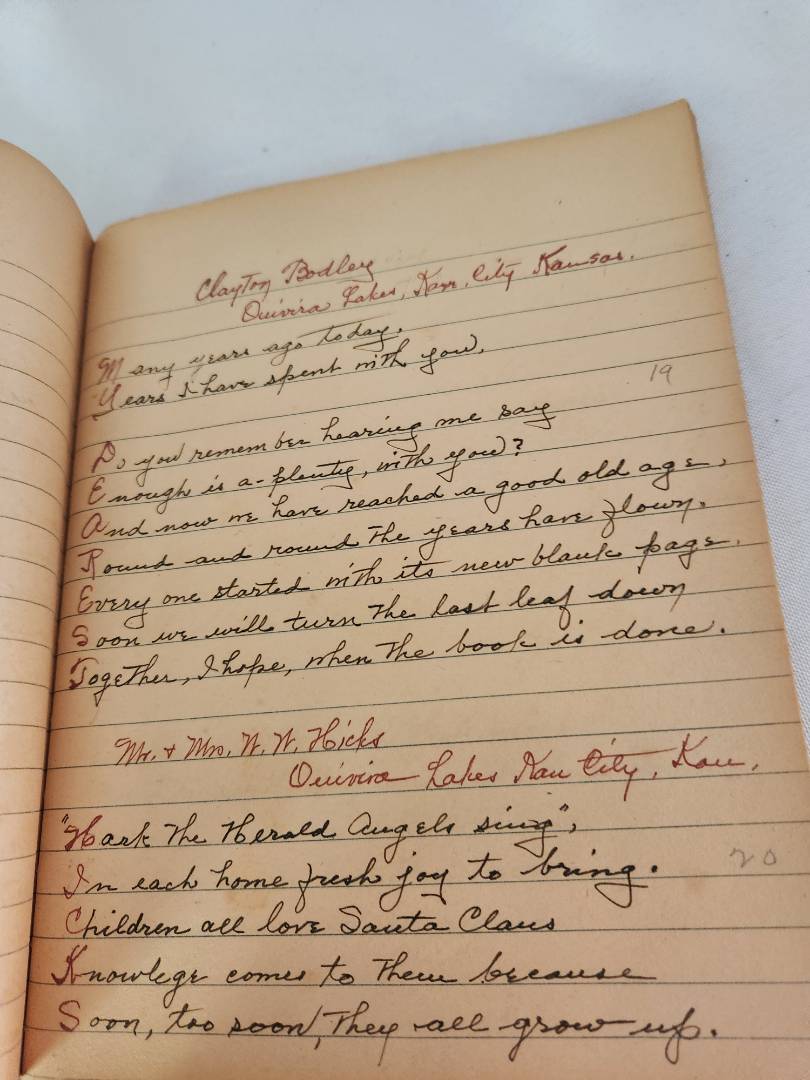 Clayton Bodley
Quivira Lakes, Kan. City Kansas.
Many years ago today.
Years I have spent with you.
19
Do you remember hearing me say
Enough is a-plenty, with you?
And now we have reached a good old age,
Round and round the years have flown.
Every one started with its new blank page.
Soon we will turn the last leaf down
Together, I hope, when the book is done.
Mr. + Mrs. W. W. Hicks
Quivira Lakes Kan City, Kan.
"Hark the Herald Angels sing",
In each home fresh joy to bring.
20
Children all love Santa Claus
Knowlege comes to them because
Soon, too soon, they all grow up.